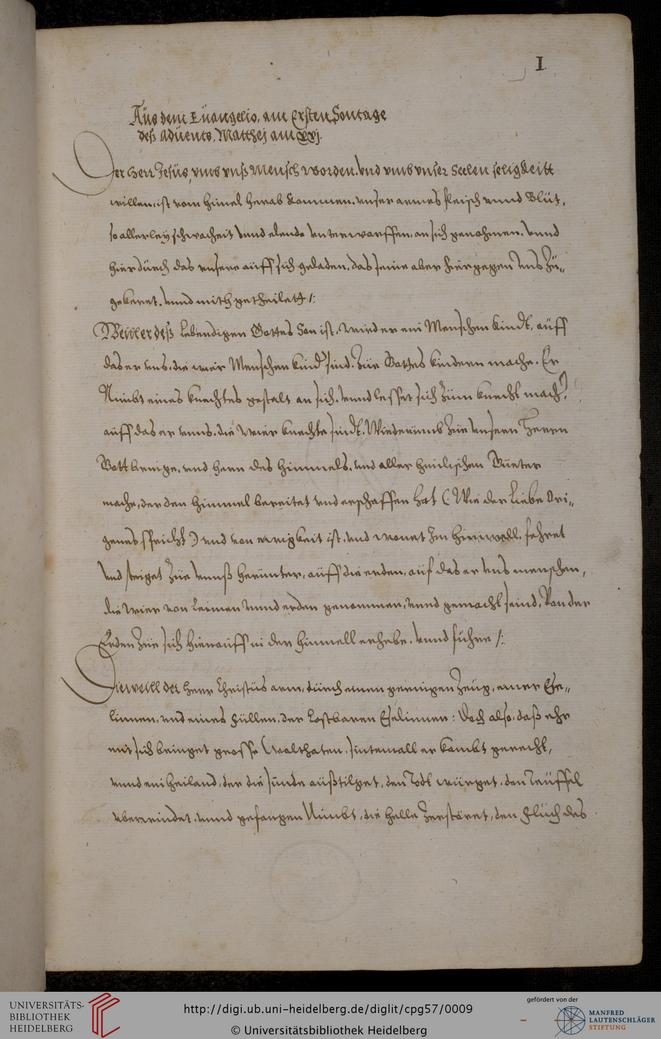 1
Aus dem Euangelio, am Ersten Sontage
deß Aduents. Matthej am xxj.
Der Herr Jesus, vmb vnß Mensch worden. vnd vmb vnser Seelen seligkeitt
willen, ist vom himel herab kommen, vnser armes fleisch vnnd Blut,
so allerley schwacheit vnnd elende vnterworffen, an sich genohmen. vnnd
hierdurch das vnsere auff sich geladen, das seine aber hiergegen vns zu-
gekeret, vnnd mithgetheilett /:
Weill er deß Lebendigen Gottes Son ist, wirdt er ein Menschen kindt, auff
das er vns, die wier Menschen kind sind, zue Gottes kindern mache. Er
Nimbt eines knechtes gestalt an sich, vnnd lesset sich zum knecht mach,
auff das er vnns, die wier knechte sindt, Wiederumb zue vnsern Herrn
Gott bringe, vnd herrn des himmels, vnd aller heilischen Gueter
mache, der den himmel bereitet vnd erschaffen hat (Wie der liebe Ori-
genes spricht) vnd von ewigkeit ist, vnd wonet Im himmell, fehret
vnd steiget zue vnnß herunter, auff die erden, auf das er vns menschen,
die wier von Leimen vnnd erden genommen, vnnd gemacht seind, Von der
Erden zue sich hienauff in den himmell erhebe, vnnd fuhre /:
Dieweill der herr Christus arm, durch einen geringen Zeug, einer Ese-
linnen, vnd eines Füllen, der lastbaren Eselinnen: Doch also, daß ehr
mit sich bringet grosse Wolthaten, sintemall er kombt gerecht,
vnnd ein heiland, der die sunde außtilget, den Todt würget, den Teuffel
vberwindet, vnnd gefangen Nimbt, die helle zerstöret, den Fluch des
UNIVERSITÄTS-
BIBLIOTHEK
HEIDELBERG
http://digi.ub.uni-heidelberg.de/diglit/cpg57/0009
© Universitätsbibliothek Heidelberg
gefördert von der
MANFRED
LAUTENSCHLÄGER
STIFTUNG